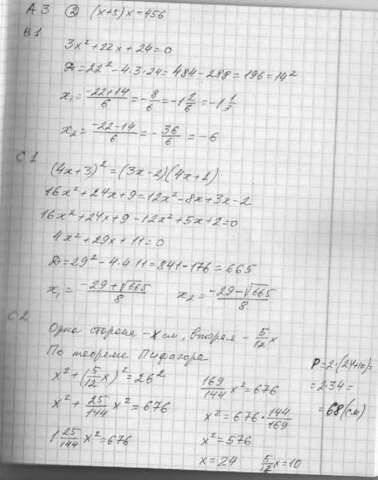 А3 ② (x+5)x=456
В1
3x²+22x+24=0
D=22²-4·3·24=484-288=196=14²
x₁=(-22+14)/6=-8/6=-1 2/6=-1 1/3
x₂=(-22-14)/6=-36/6=-6
С1
(4x+3)²=(3x-2)(4x+2)
16x²+24x+9=12x²-8x+3x-2
16x²+24x+9-12x²+5x+2=0
4x²+29x+11=0
D=29²-4·4·11=841-176=665
x₁=(-29+√665)/8 x₂=(-29-√665)/8
С2
Одна сторона -x см, вторая - 5/12 x
По теореме Пифагора
x²+(5/12 x)²=26²
x²+25/144 x²=676
1 25/144 x²=676
169/144 x²=676
x²=676·144/169
x²=576
x=24 5/12 x=10
P=2·(24+10)=
=2·34=
=68(см)